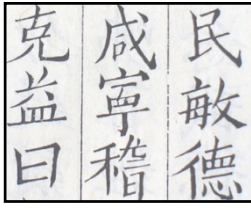 民敏德
咸寧稽
克益曰